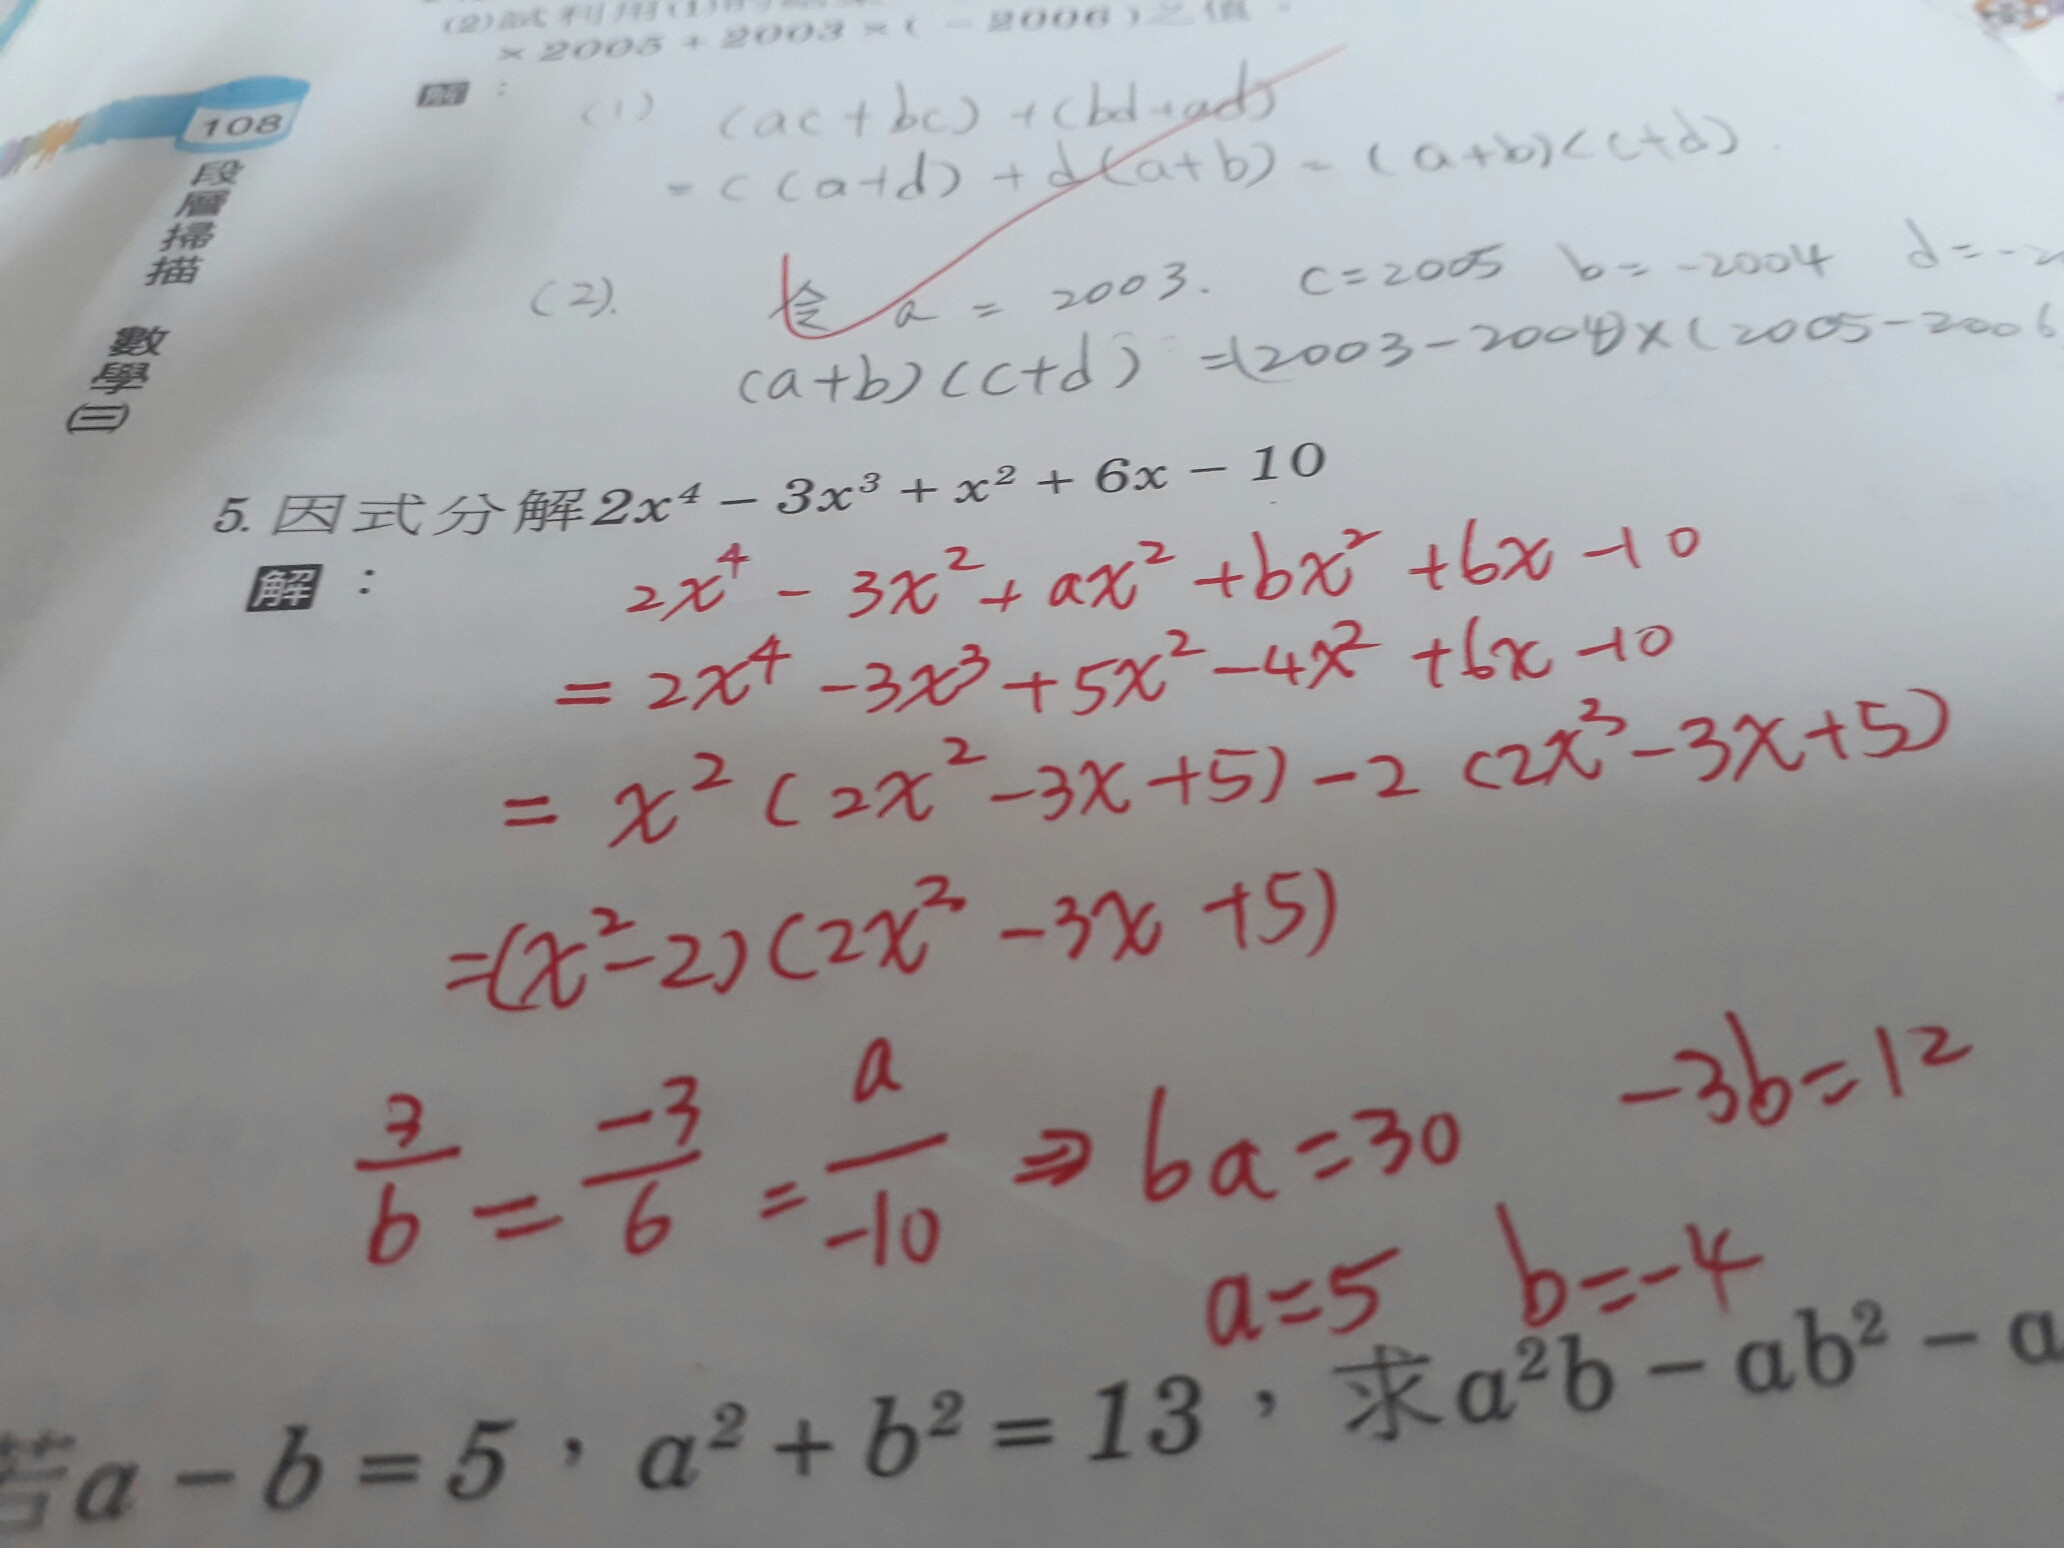 (2)試利用(1)的
× 2005 + 2003 × ( - 2006 ) 之值。
108
段層掃描 數學(三)
解：
(1) (ac + bc) + (bd + ad)
= c (a+d) + d (a+b) = (a+b) (c+d).
(2). 令 a = 2003. c = 2005 b = -2004 d = -2
(a+b) (c+d) = (2003 - 2004) × (2005 - 2006
5. 因式分解2x⁴ − 3x³ + x² + 6x − 10
解：
2x⁴ - 3x² + ax² + bx² + 6x - 10
= 2x⁴ - 3x³ + 5x² - 4x² + 6x - 10
= x² (2x² - 3x + 5) - 2 (2x² - 3x + 5)
= (x² - 2) (2x² - 3x + 5)
3/b = -3/6 = a/-10 ⇒ 6a = 30 -3b = 12
a = 5 b = -4
若a − b = 5，a² + b² = 13，求a²b − ab² − a